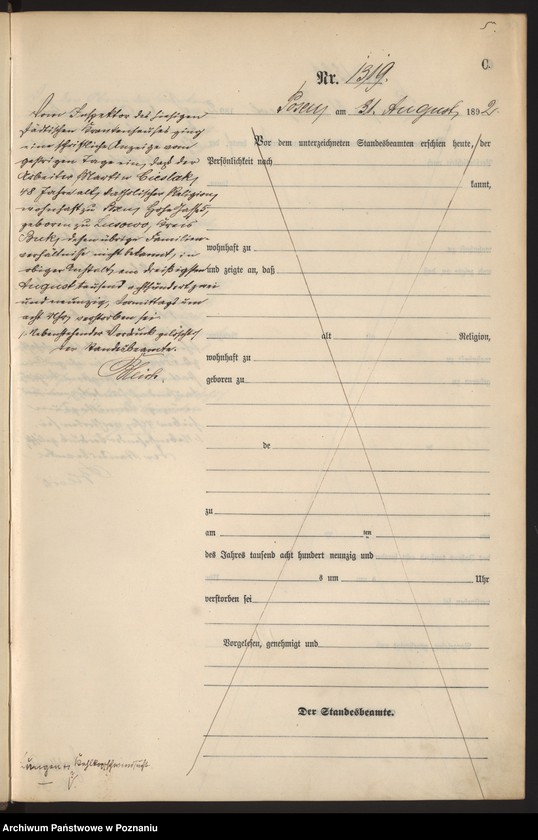 5.
C.
Nr. 1319.
Posen, am 31. August 1892.
Vom Inspektor des hiesigen
städtischen Krankenhauses ging
eine schriftliche Anzeige vom
gestrigen Tage ein, daß der
Arbeiter Martin Cieslak,
48 Jahre alt, katholischer Religion,
wohnhaft zu
geboren zu Lussowo, Kreis
Buk, dessen übrige Familien-
verhältnisse nicht bekannt, in
obiger Anstalt, am dreißigsten
August tausend achthundert zwei
und neunzig, Vormittags um
acht Uhr, verstorben sei.
Nebenstehender Vordruck gelöscht.
Der Standesbeamte.
Vor dem unterzeichneten Standesbeamten erschien heute, der
Persönlichkeit nach
kannt,
wohnhaft zu
und zeigte an, daß
alt Religion,
wohnhaft zu
geboren zu
de
zu
am ten
des Jahres tausend acht hundert neunzig und
s um Uhr
verstorben sei
Vorgelesen, genehmigt und
Der Standesbeamte.
Lungen u. Kehlkopfschwindsucht
Archiwum Państwowe w Poznaniu